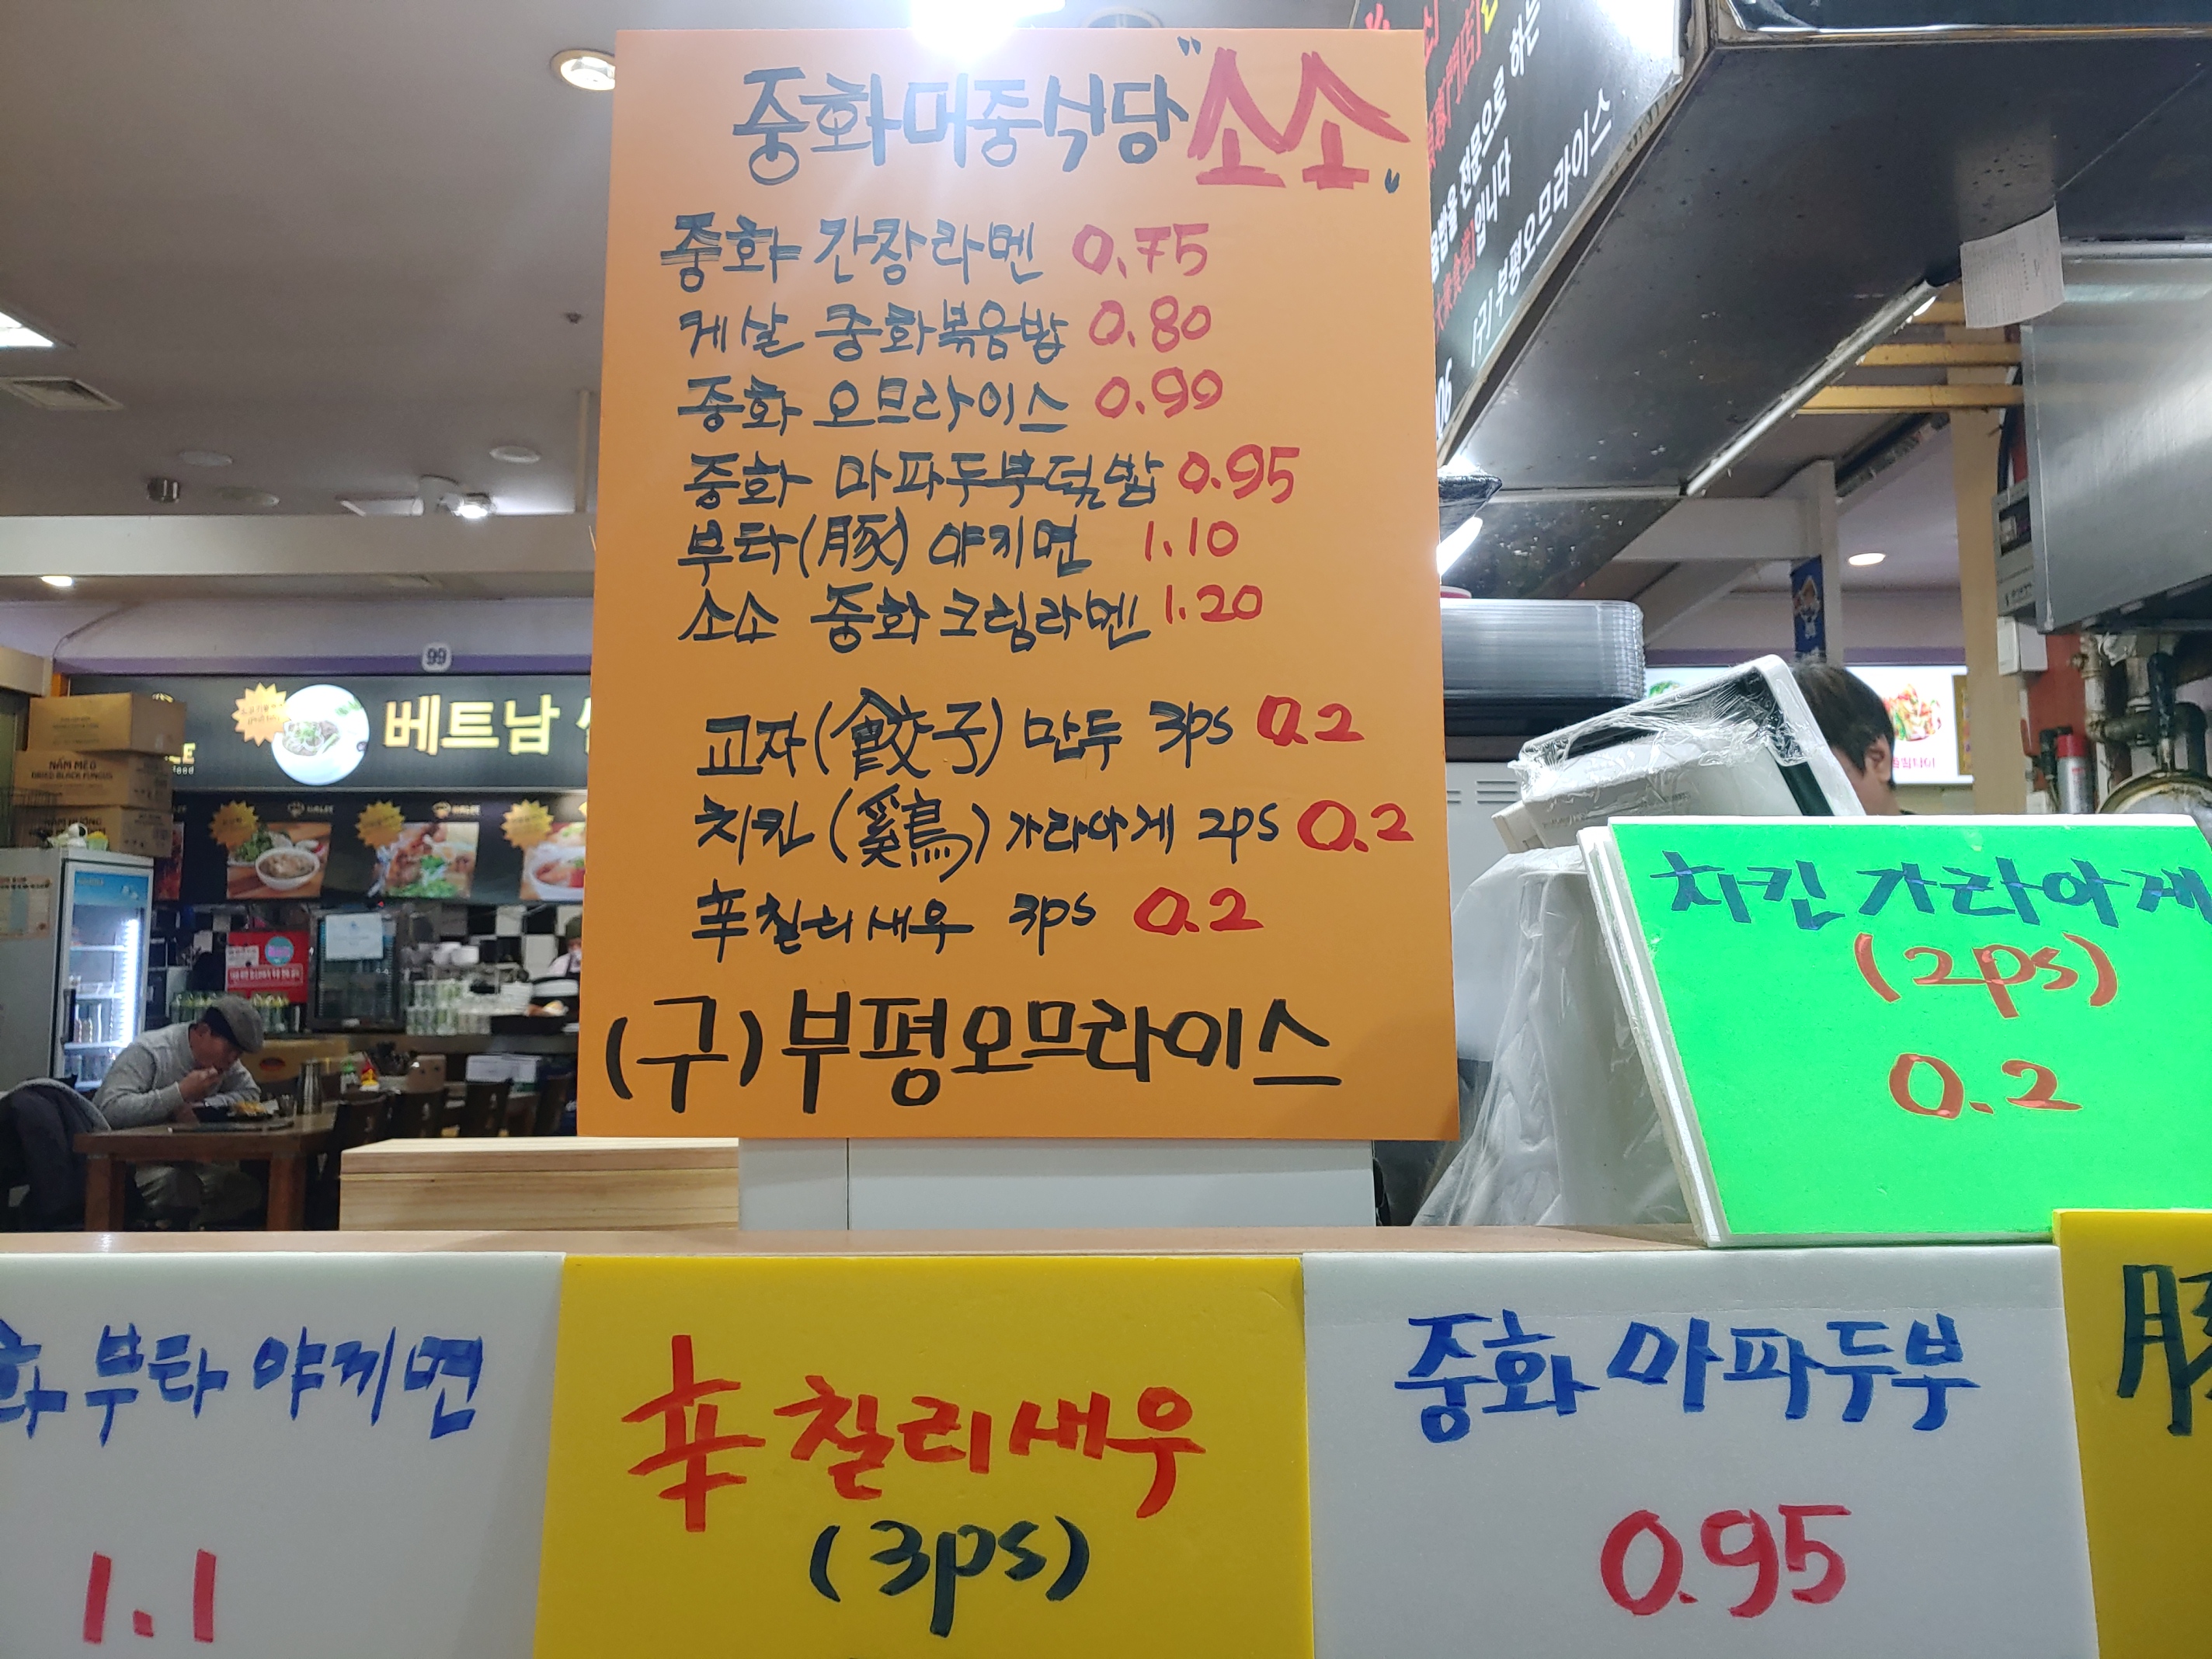 중화대중식당 "소소"
중화 간장라멘 0.75
게살 중화볶음밥 0.80
중화 오므라이스 0.90
중화 마파두부덮밥 0.95
부타(豚) 야끼면 1.10
소소 중화크림라멘 1.20
교자(餃子) 만두 3ps 0.2
치킨(鷄) 가라아게 2ps 0.2
辛칠리새우 3ps 0.2
(구)부평오므라이스
전문으로 하는
입니다
(구) 부평오므라이스
99
베트남
NẤM MÈO
DRIED BLACK FUNGUS
치킨 가라아게
(2ps)
0.2
화 부타 야끼면
1.1
辛 칠리새우
(3ps)
중화 마파두부
0.95